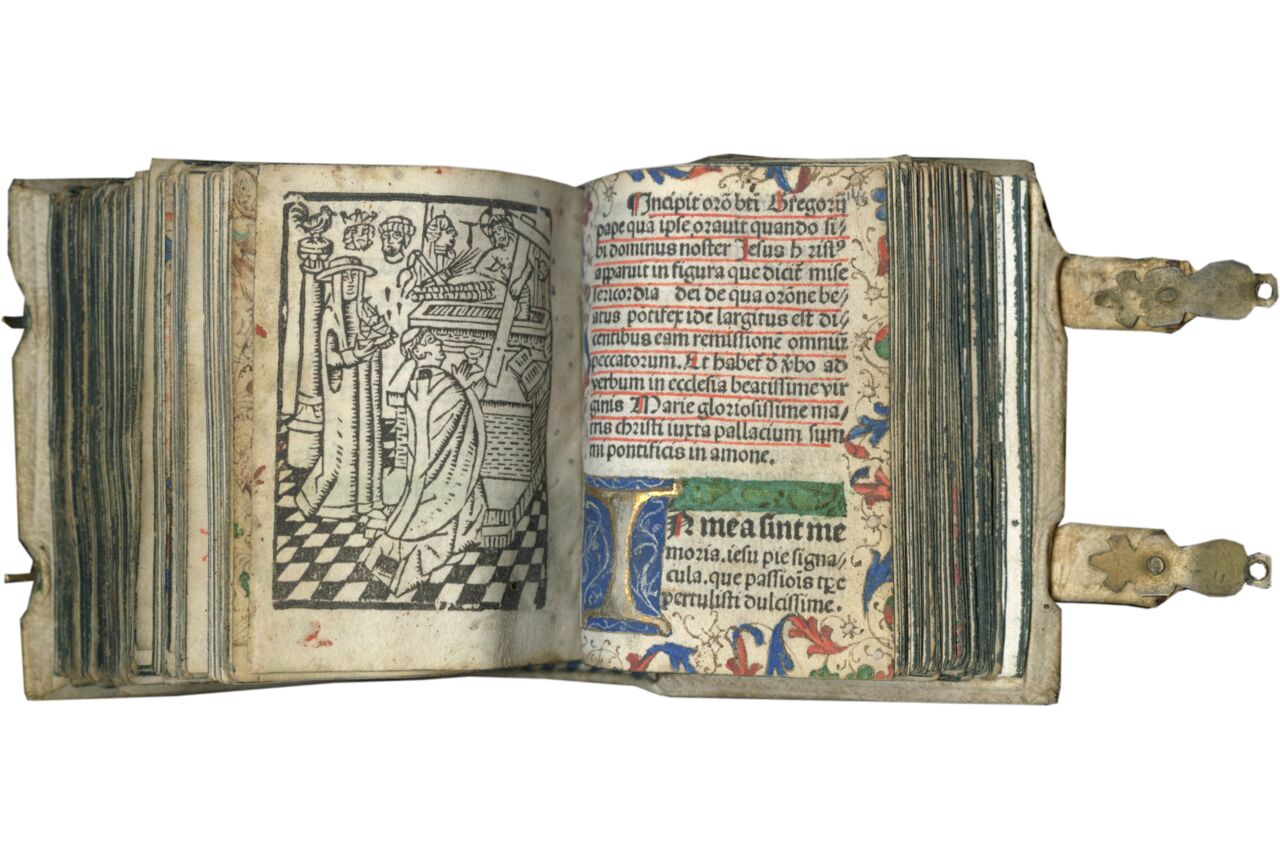 Incipit orō bti Gregorij
pape quā ipse orauit quando si⸗
bi dominus noster Iesus h rist⁹
apparuit in figura que dicit̄ mise
ricordia dei de qua orōne be⸗
atus pōtifex ide largitus est di⸗
centibus eam remissione omniū
peccatorum. Et habet̄ d̄ v̄bo ad
verbum in ecclesia beatissime vir
ginis Marie gloriosissime ma⸗
tris christi iuxta pallacium sum
mi pontificis in amone.
IN mea sint me
moria. iesu pie signa⸗
cula. que passiōis tpe
pertulisti dulcissime.